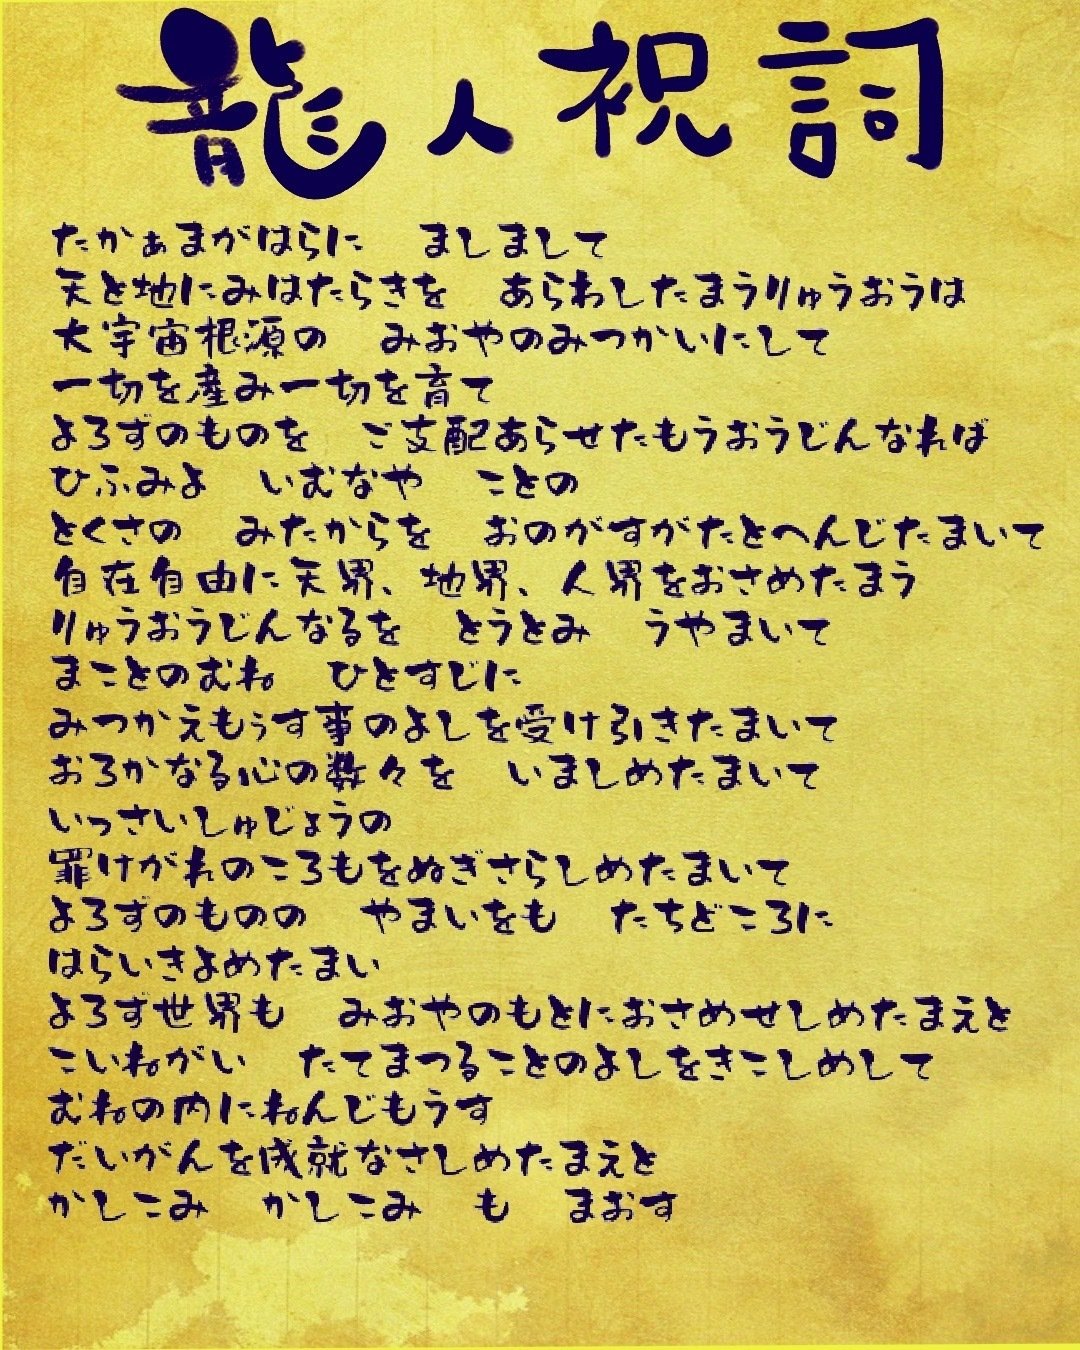 龍人祝詞
たかぁまがはらに　ましまして
天と地にみはたらきを　あらわしたまうりゅうおうは
大宇宙根源の　みおやのみつかいにして
一切を産み一切を育て
よろずのものを　ご支配あらせたもうおうじんなれば
ひふみよ　いむなや　ことの
とくさの　みたからを　おのがすがたとへんじたまいて
自在自由に天界、地界、人界をおさめたまう
りゅうおうじんなるを　とうとみ　うやまいて
まことのむね　ひとすじに
みつかえもぅす事のよしを受け引きたまいて
おろかなる心の数々を　いましめたまいて
いっさいしゅじょうの
罪けがれのころもをぬぎさらしめたまいて
よろずのものの　やまいをも　たちどころに
はらいきよめたまい
よろず世界も　みおやのもとにおさめせしめたまえと
こいねがい　たてまつることのよしをきこしめして
むねの内にねんじもうす
だいがんを成就なさしめたまえと
かしこみ　かしこみ　も　まおす